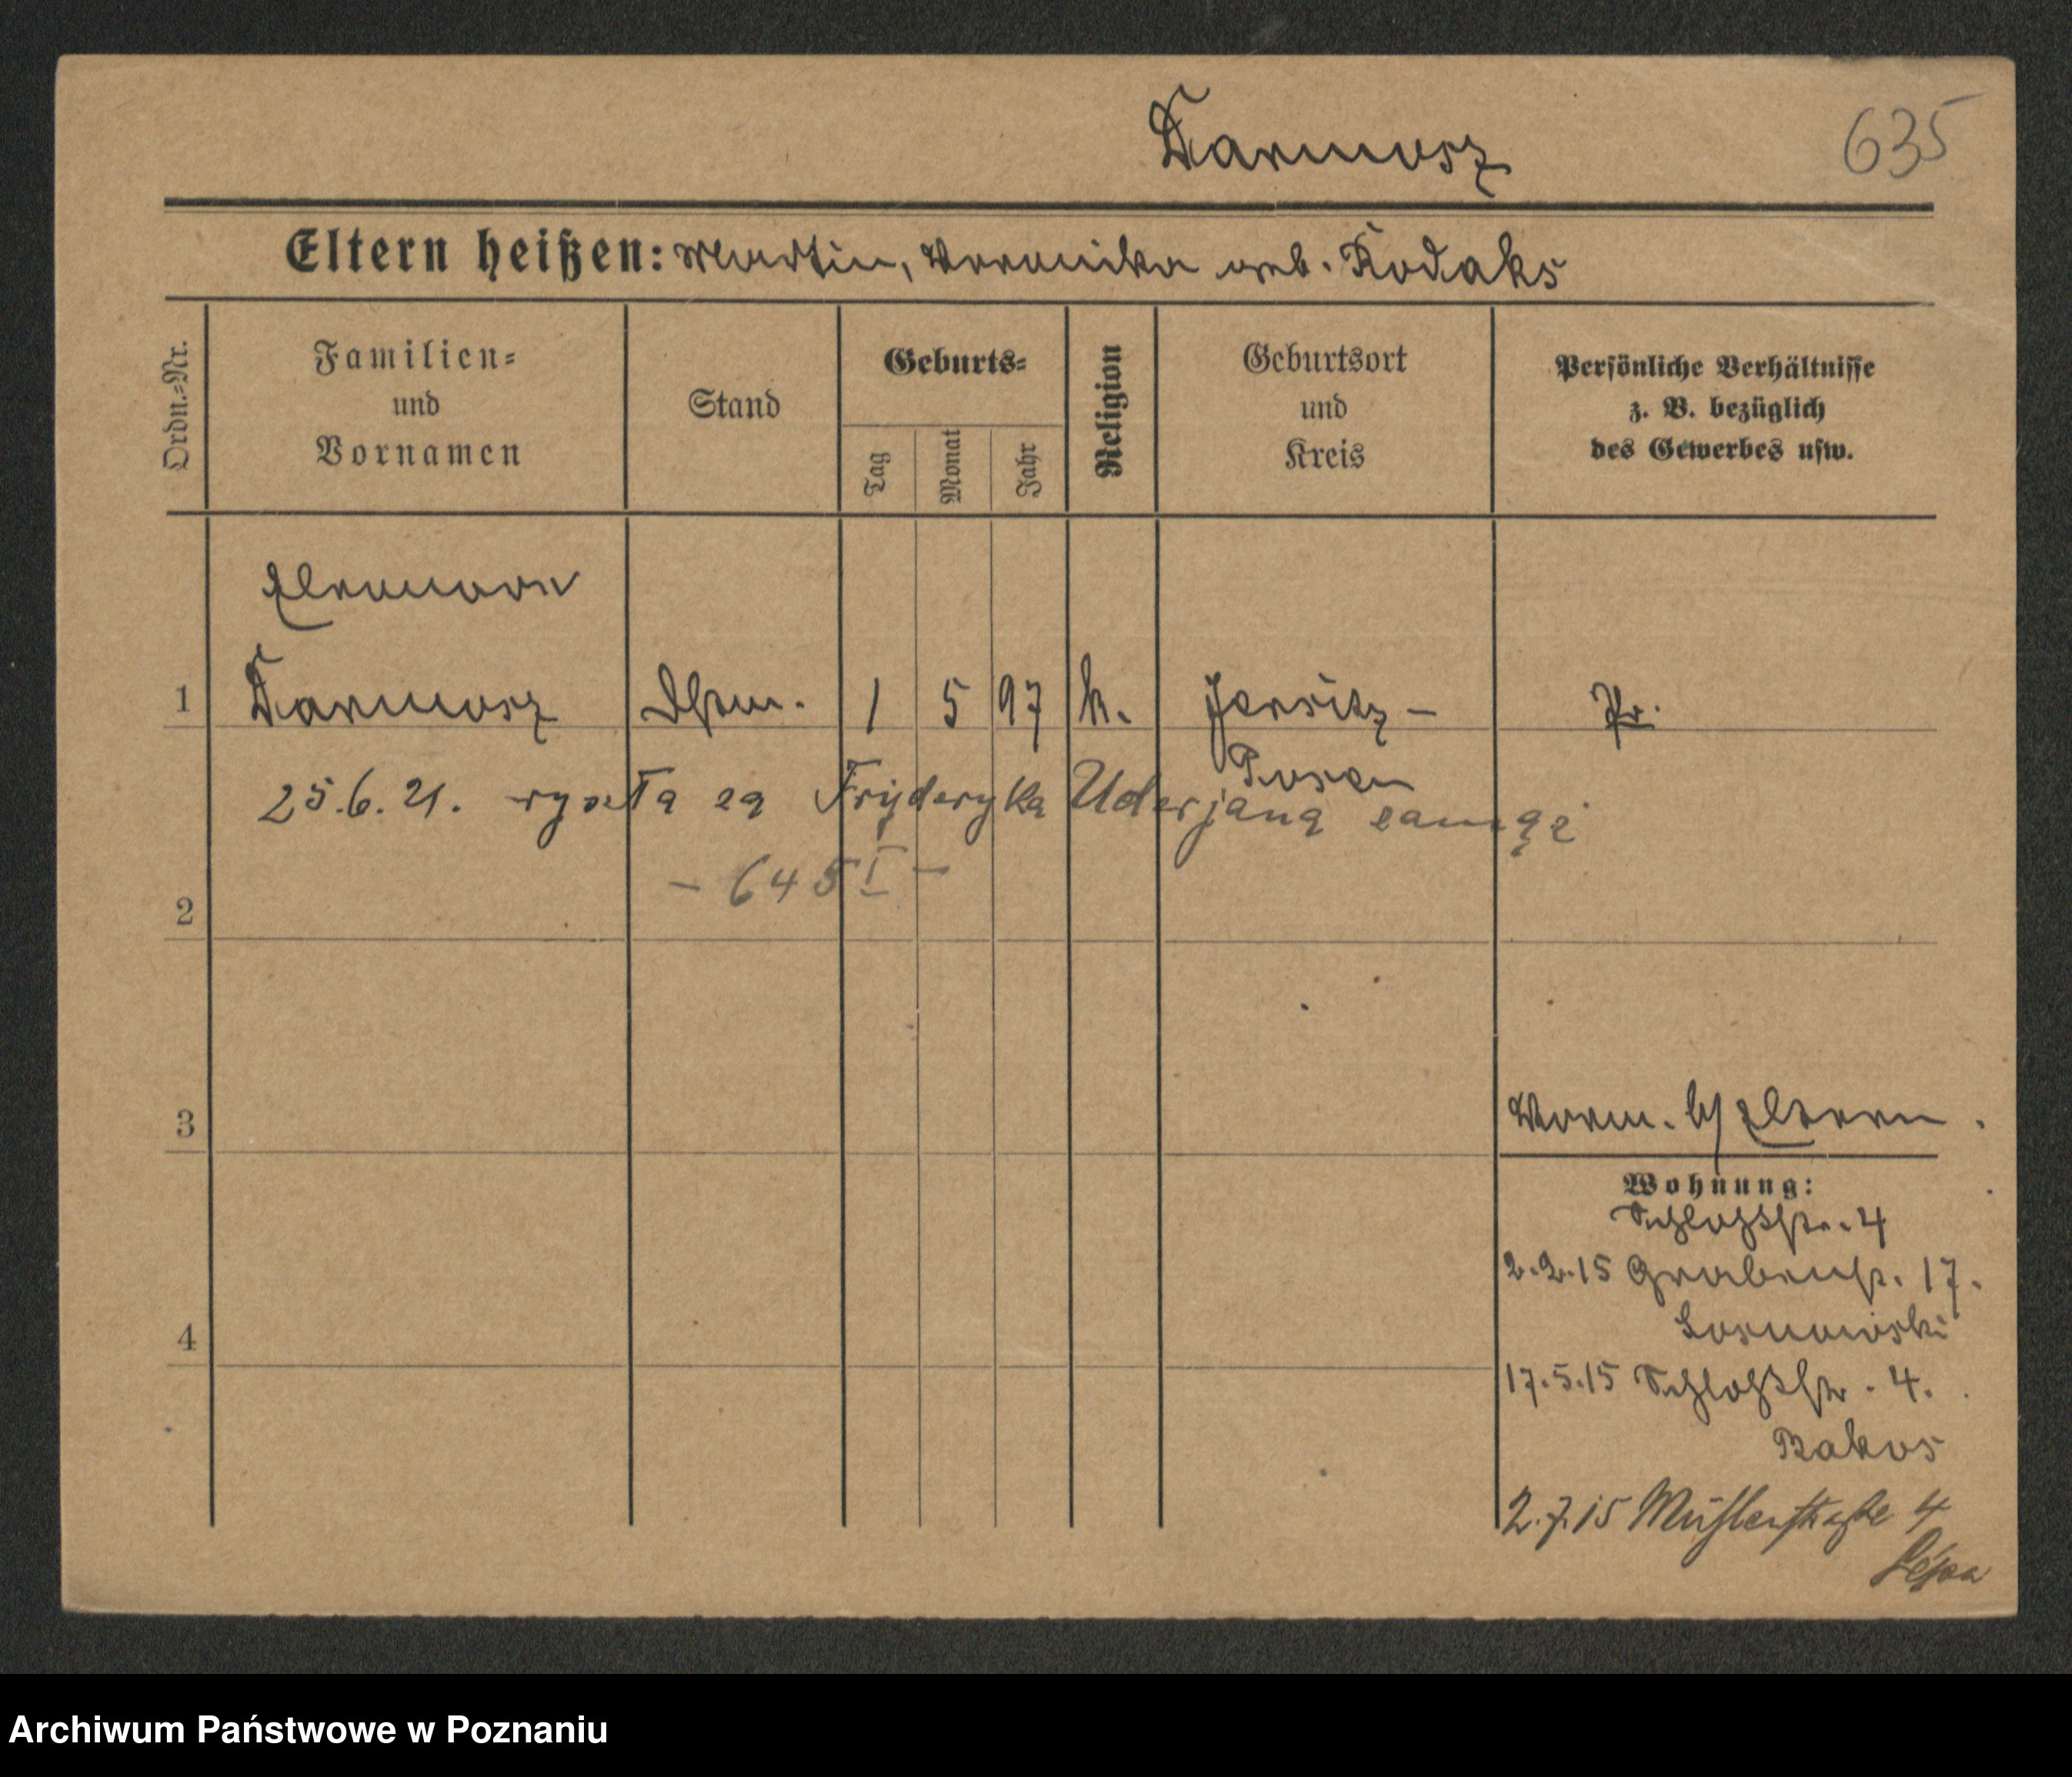 Darmosz
635
Eltern heißen: Martin, Veronika geb. Kodaks
Ordn.-Nr.
Familien-
und
Vornamen
Stand
Geburts-
Tag
Monat
Jahr
Religion
Geburtsort
und
Kreis
Persönliche Verhältnisse
z. B. bezüglich
des Gewerbes usw.
Eleonore
1 Darmosz 1 5 97 k. Jersitz - Pr.
Posen
25.6.21. za Fryderyka
- 645 I -
2
3
Vorm. Eltern.
Wohnung:
Schloßstr. 4
2.2.15 Grabenstr. 17.
Sosnowski
4
17.5.15 Schloßstr. 4.
Bakos
2.7.15 Mühlenstraße 4
Archiwum Państwowe w Poznaniu